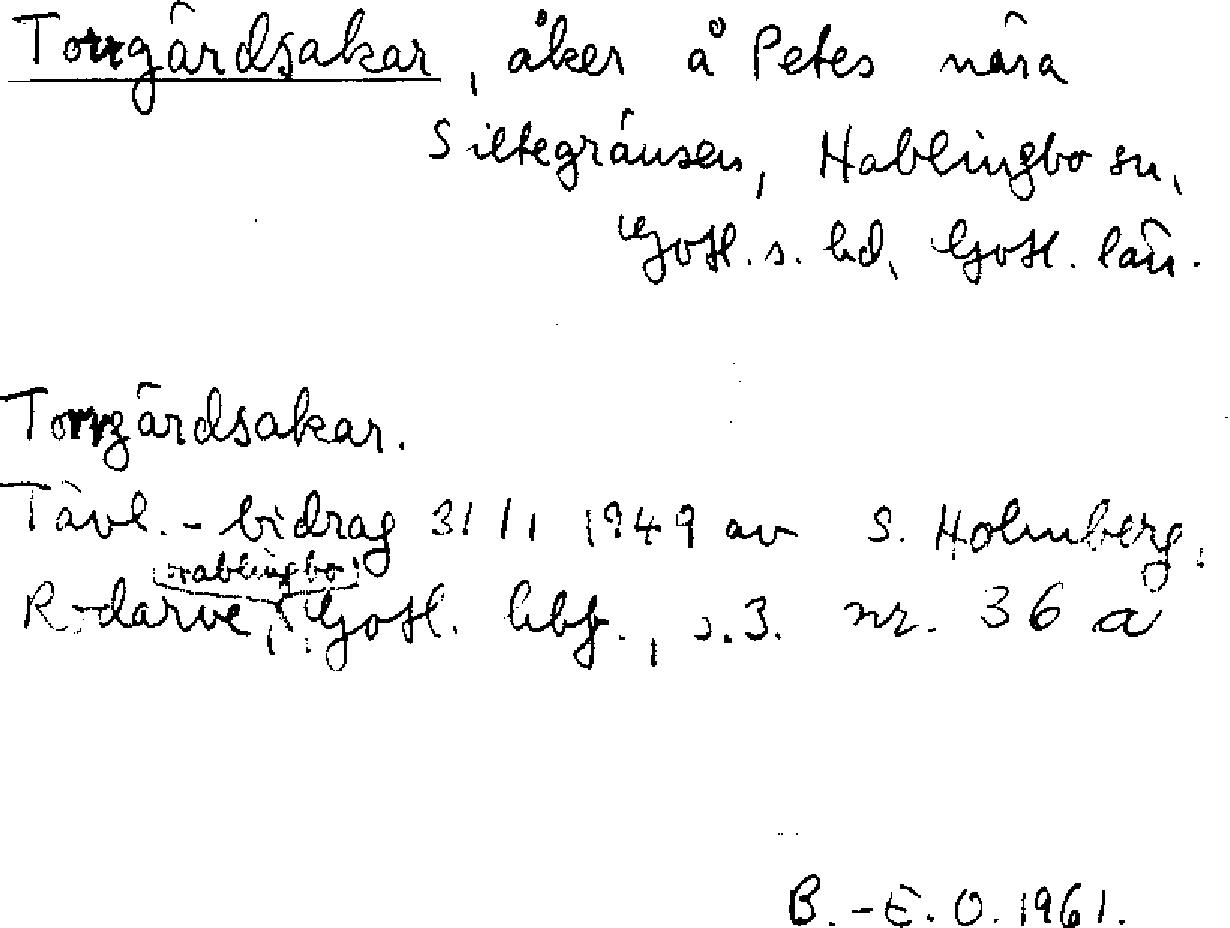 Torrgärdsakar, åker å Petes nära
Siltegränsen, Hablingbo sn,
Gotl. s. hd, Gotl. län.
Torrgärdsakar.
Tävl.-bidrag 31/1 1949 av S. Holmberg,
Hablingbo
Rodarve, Gotl. hbf., s.3. nr. 36 a
B.-E. O. 1961.